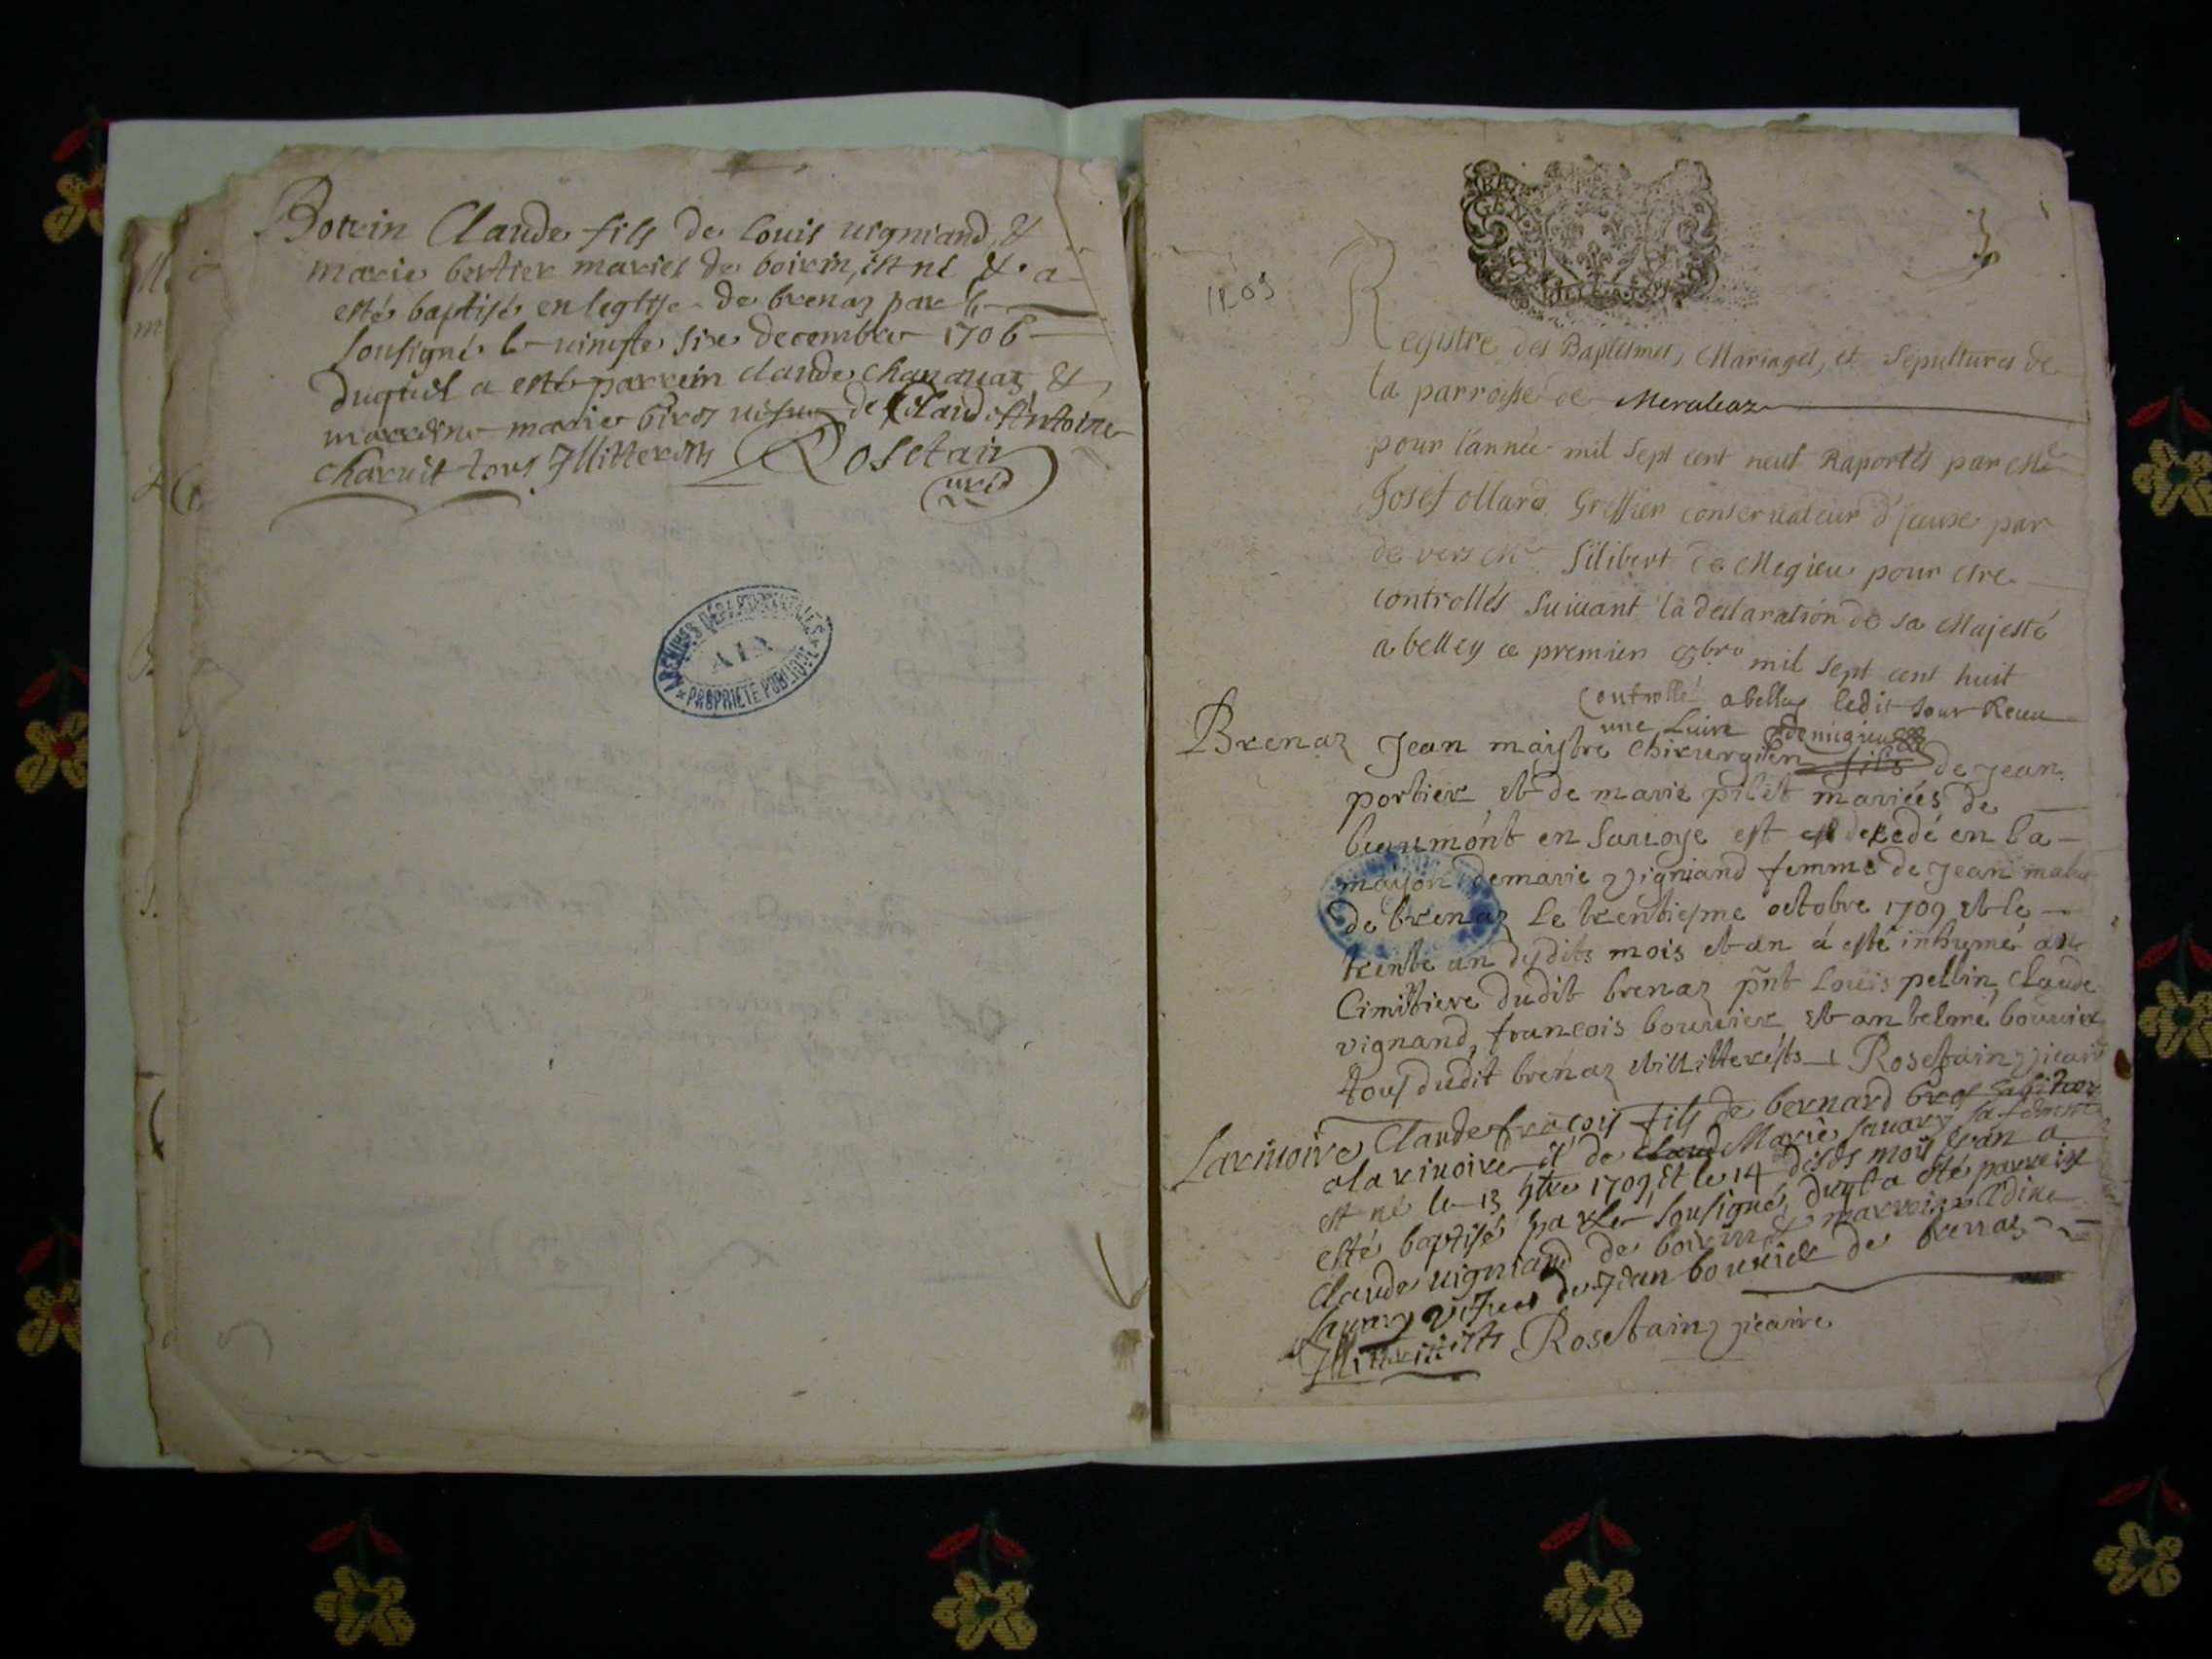 Boirin Claude fils de Louis uigniand, &
marie bertier mariés de boirin, est né & a
esté baptisé en leglise de brenaz par le
sousigné le uingte six decembre 1706
duquel a esté parrein claude chanauaz &
marreine marie biros uefue de Claude Antoine
charuit tous Illitterés Rosetain
curé
ARCHIVES DÉPARTEMENTALES
AIN
* PROPRIÉTÉ PUBLIQUE *
3
1709
GEN
Registre des Baptesmes, Mariages, et Sepultures de
la parroisse de Meraleaz
pour l'année mil sept cent neuf Raportés par Me
Josef ollard Greffier conservateur d'jceuse par
de vers Me filibert de Megieu pour etre
controllés suivant la declaration de sa Majesté
a belley ce premier 8bre mil sept cent huit
Controllé a belley ledit Jour Receu
une Liure Demigieu
Brenaz Jean maystre chirurgien fils de jean
portier et de marie pilet mariées de
beaumont en Sauoye est decedé en la
mayson de marie vigniand femme de Jean
de brenaz le trentiesme octobre 1709 et le
trente un dudits mois et an à esté inhumé au
Cimittiere dudit brenaz pñt Louis pellin, Claude
vignand, francois bouuier et anthelme bouuier
tous dudit brenaz et illitterés Rosetain vicaire
Larinoire Claude fracois fils de bernard bros habitant
a larinoire et de Marie sauary sa femme
est né le 13 9bre 1709, et le 14 disds mois & an a
esté baptisé par le sousigné, duql a été parrein
Claude uigniand de boirin & marreine Cdine
sauary vefue de Jean bouuier de brenaz
Illitterés Rosetain vicaire